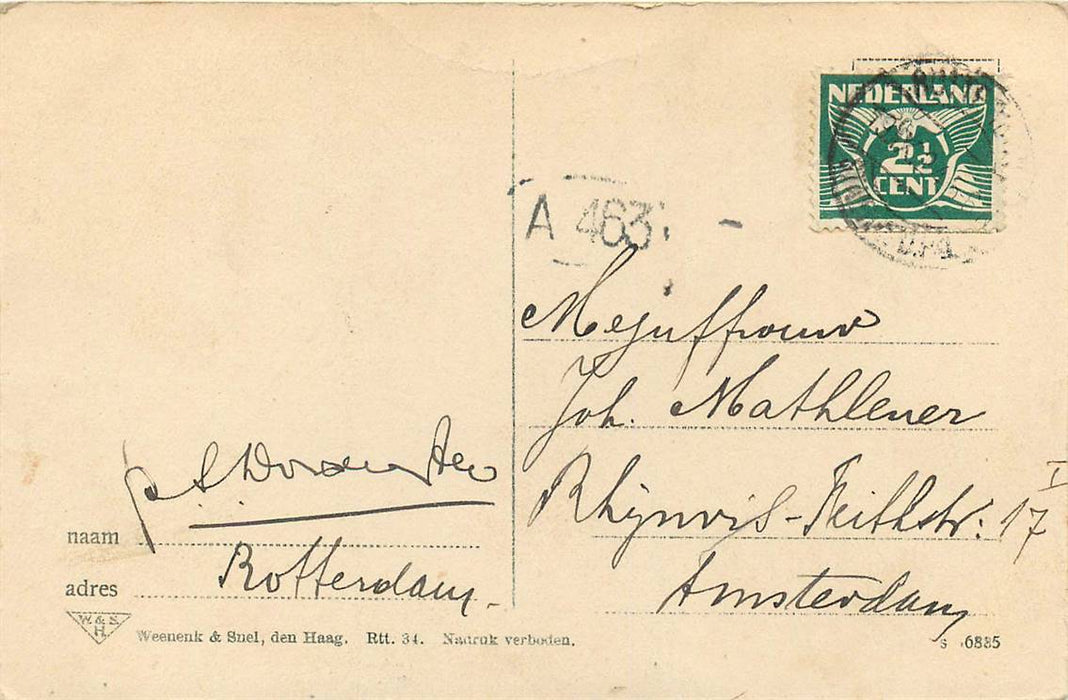 NEDERLAND
2½
CENT
A 463
Mejuffrouw
Joh. Mathlener
Rhijnvis-Feithstr. 17 I
Amsterdam
naam
adres Rotterdam.
W. & S.
H.
Weenenk & Snel, den Haag. Rtt. 34. Nadruk verboden.
S 6885